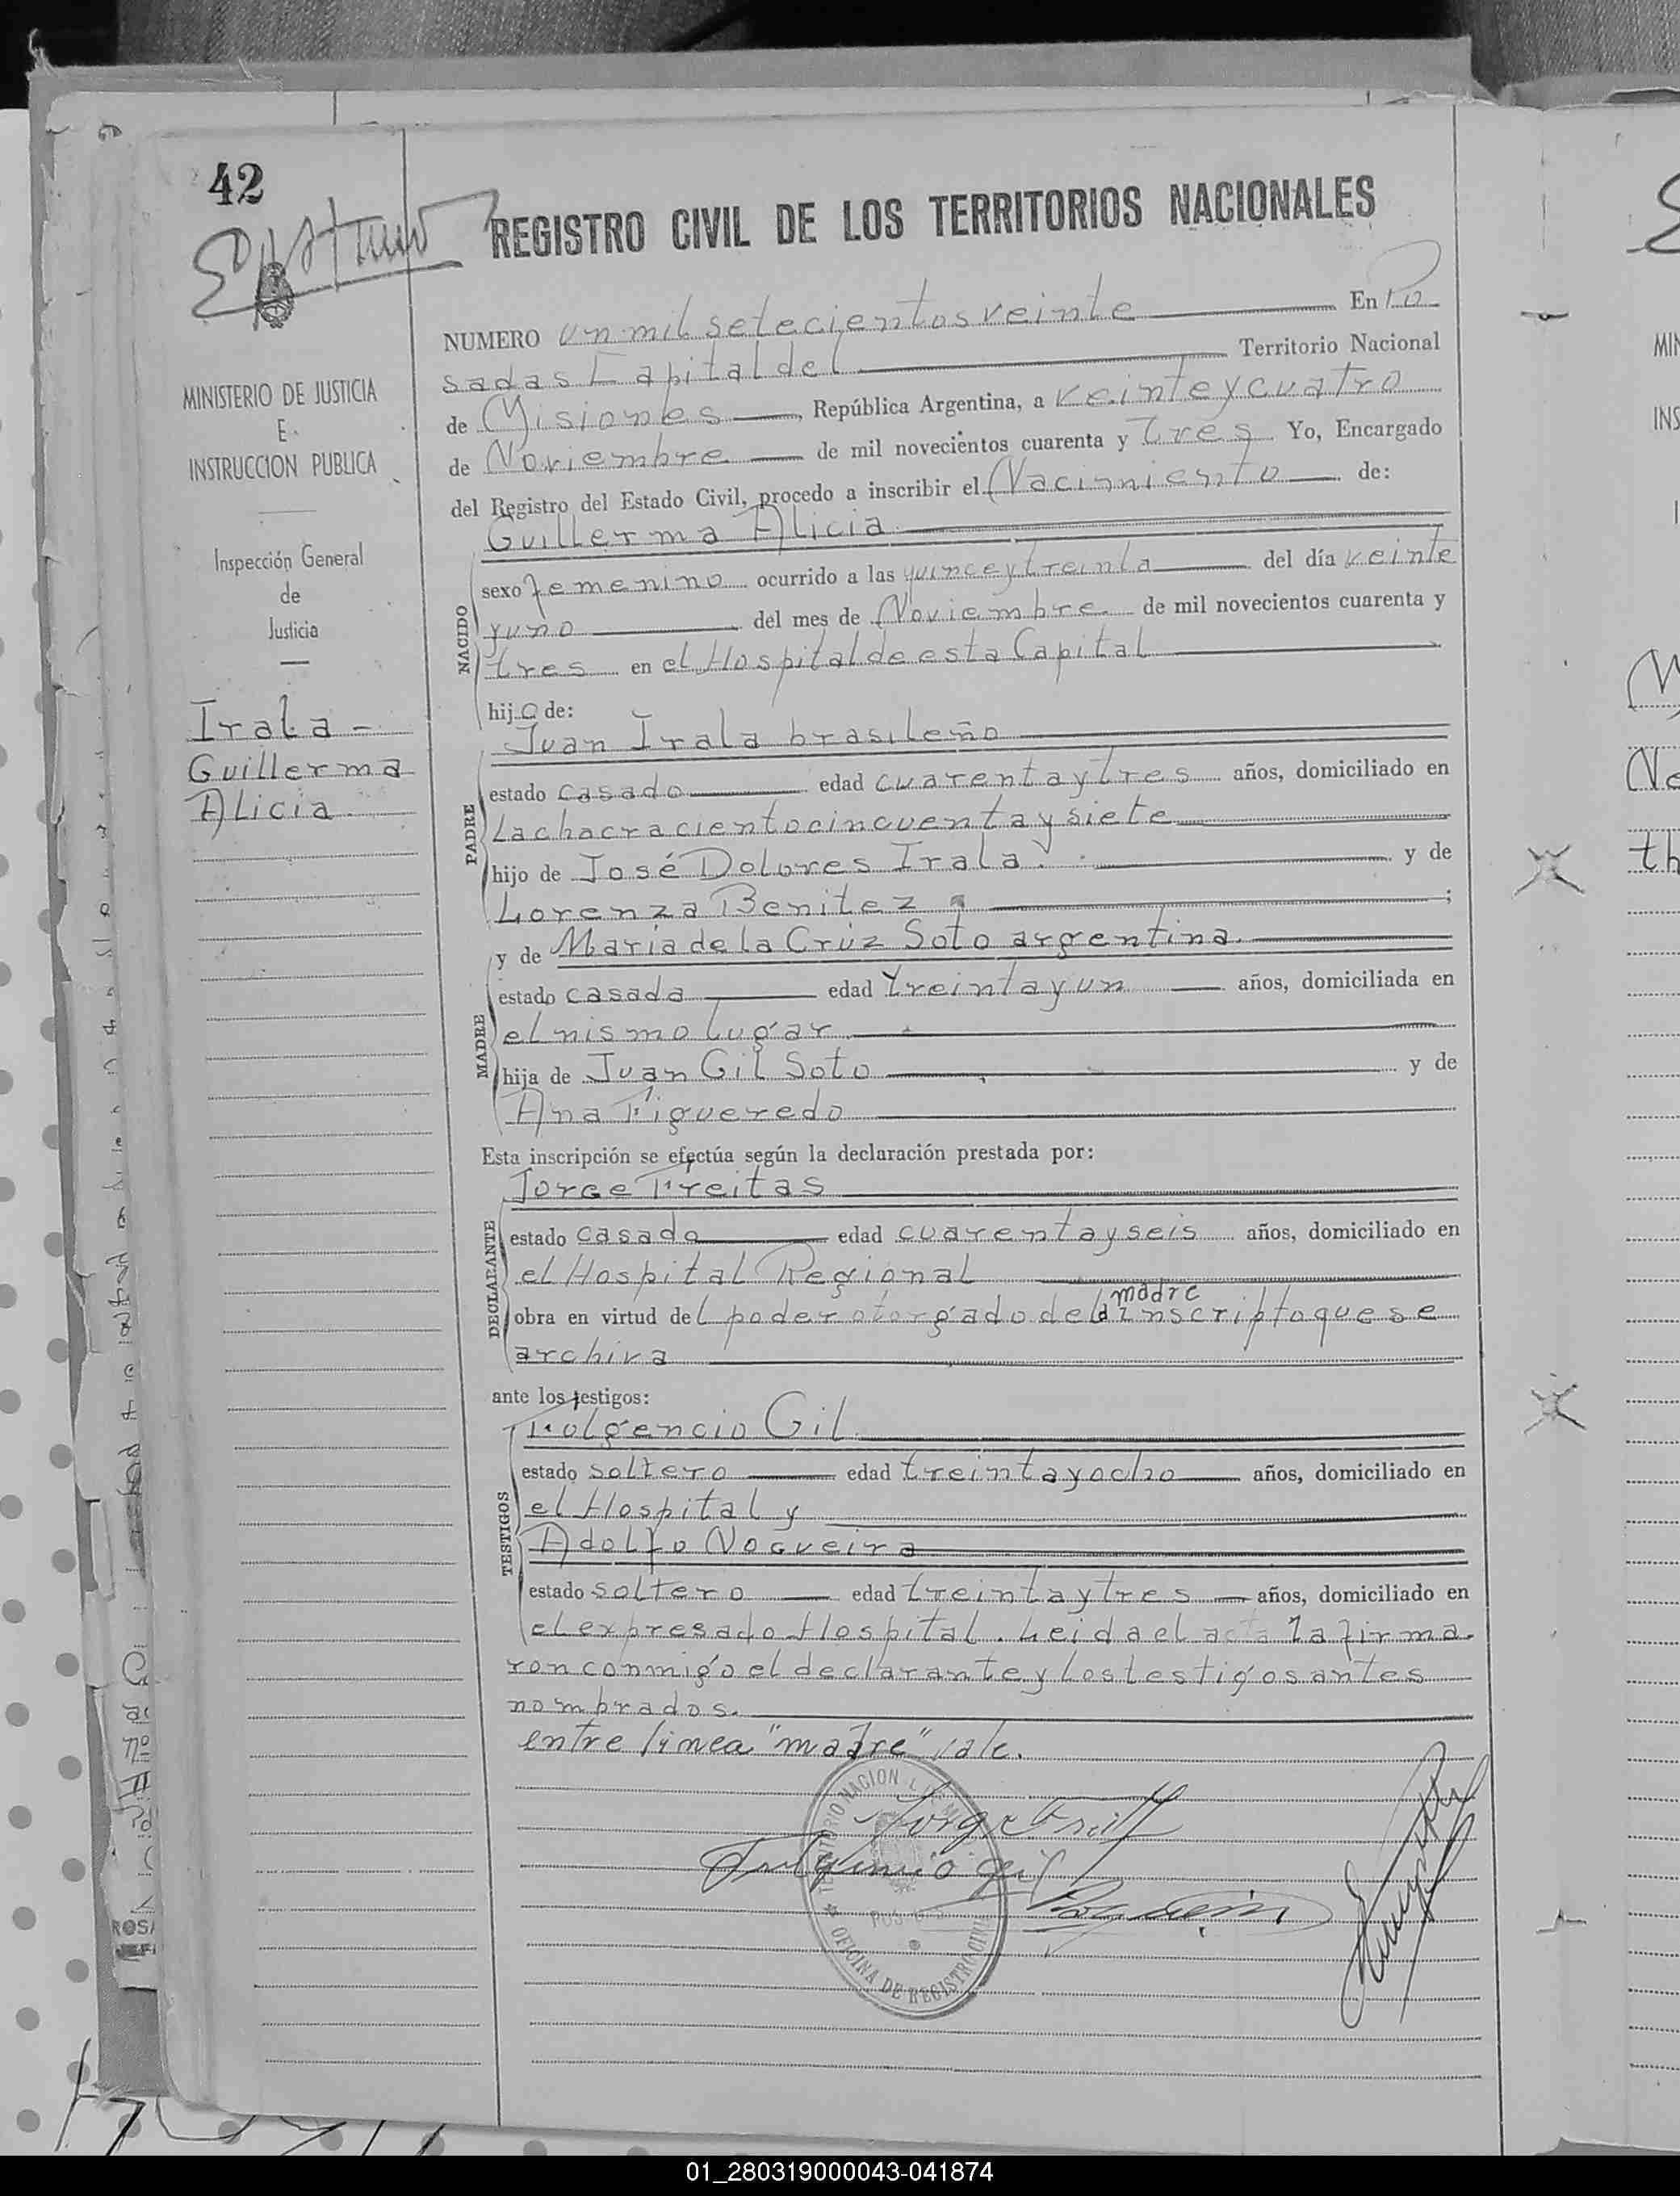 42
REGISTRO CIVIL DE LOS TERRITORIOS NACIONALES
NUMERO un mil setecientos veinte En Po
sadas Capital del Territorio Nacional
de Misiones, República Argentina, a veinte y cuatro
de Noviembre de mil novecientos cuarenta y tres Yo, Encargado
del Registro del Estado Civil, procedo a inscribir el Nacimiento de:
Guillerma Alicia
NACIDO
sexo femenino ocurrido a las quince y treinta del día veinte
y uno del mes de Noviembre de mil novecientos cuarenta y
tres en el Hospital de esta Capital
hija de:
PADRE
Juan Irala brasileño
estado casado edad cuarenta y tres años, domiciliado en
la chacra ciento cincuenta y siete
hijo de José Dolores Irala y de
Lorenza Benitez ;
MADRE
y de Maria de la Cruz Soto argentina.
estado casada edad treinta y un años, domiciliada en
el mismo lugar
hija de Juan Gil Soto y de
Ana Figueredo
Esta inscripción se efectúa según la declaración prestada por:
DECLARANTE
Jorge Freitas
estado casado edad cuarenta y seis años, domiciliado en
el Hospital Regional
madre
obra en virtud del poder otorgado de la inscripta que se
archiva
ante los testigos:
TESTIGOS
Fulgencio Gil
estado soltero edad treinta y ocho años, domiciliado en
el Hospital y
Adolfo Nogueira
estado soltero edad treinta y tres años, domiciliado en
el expresado Hospital. Leida el acta la firma-
ron conmigo el declarante y los testigos antes
nombrados.
entre linea "madre" vale.
MINISTERIO DE JUSTICIA
E
INSTRUCCION PUBLICA
Inspección General
de
Justicia
Irala -
Guillerma
Alicia
OFICINA DE REGISTRO CIVIL
01_280319000043-041874